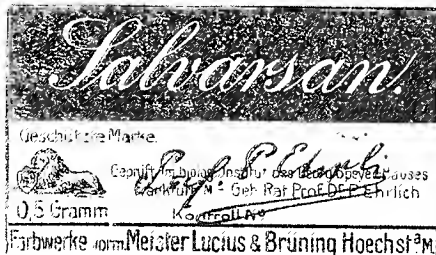 Salvarsan!
Geschützte Marke.
Geprüft im biolog. Institut des Georg Speyer Hauses
Prof. P. Ehrlich
Frankfurt a/M. Geh. Rat Prof. Dr. P. Ehrlich
0,5 Gramm
Kontroll No
Farbwerke vorm. Meister Lucius & Brüning Hoechst a/M